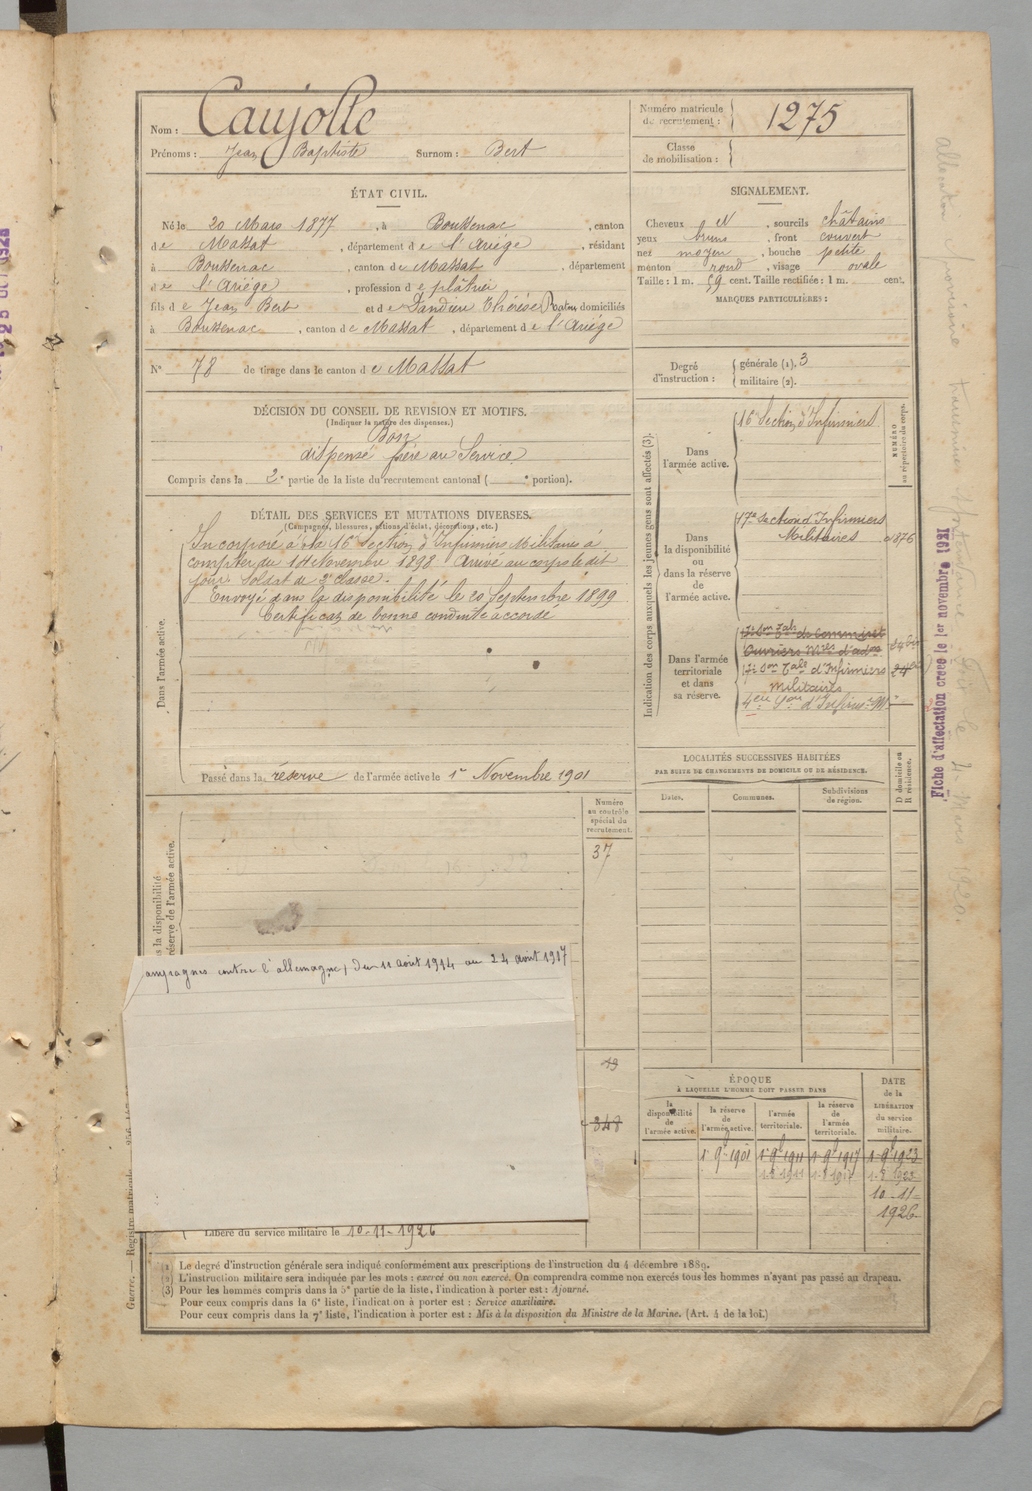 Nom : Caujolle
Prénoms : Jean Baptiste Surnom : Bert
Numéro matricule de recrutement : 1275
Classe de mobilisation :
ÉTAT CIVIL.
Né le 20 Mars 1877, à Boussenac, canton
de Massat, département de l'Ariège, résidant
à Boussenac, canton de Massat, département
de l'Ariège, profession de plâtrier
fils de Jean Bert et de Dandieu Thérèse domiciliés
à Boussenac, canton de Massat, département de l'Ariège
N° 78 de tirage dans le canton de Massat
SIGNALEMENT.
Cheveux N, sourcils châtains
yeux bruns, front couvert
nez moyen, bouche petite
menton rond, visage ovale
Taille : 1 m. 59 cent. Taille rectifiée : 1 m. cent.
MARQUES PARTICULIÈRES :
Degré d'instruction : générale (1). 3
militaire (2).
DÉCISION DU CONSEIL DE REVISION ET MOTIFS.
(Indiquer la nature des dispenses.)
Bon
dispensé frère au Service
Compris dans la 2e partie de la liste du recrutement cantonal ( e portion).
DÉTAIL DES SERVICES ET MUTATIONS DIVERSES.
(Campagnes, blessures, actions d'éclat, décorations, etc.)
Dans l'armée active.
Incorporé à la 16e Section d'Infirmiers Militaires à
compter du 14 Novembre 1898 Arrivé au corps le dit
jour Soldat de 2e classe.
Envoyé dans la disponibilité le 20 Septembre 1899
Certificat de bonne conduite accordé
Passé dans la réserve de l'armée active le 1er Novembre 1901
Indication des corps auxquels les jeunes gens sont affectés (3).
NUMÉRO au répertoire du corps.
Dans l'armée active.
16e Section d'Infirmiers
Dans la disponibilité ou dans la réserve de l'armée active.
17e Section d'Infirmiers
Militaires 1876
Dans l'armée territoriale et dans sa réserve.
17e Son Tale de Commis et
Ouvriers Mres d'adon
17e Son Tale d'Infirmiers
Militaires
LOCALITÉS SUCCESSIVES HABITÉES
PAR SUITE DE CHANGEMENTS DE DOMICILE OU DE RÉSIDENCE.
Dates. Communes. Subdivisions de région.
D domicile ou R résidence.
Numéro au contrôle spécial du recrutement.
37
s la disponibilité
réserve de l'armée active.
ampagnes contre l'allemagne, du 11 août 1914 au 24 août 1917
348
Libéré du service militaire le 10-11-1926
ÉPOQUE
À LAQUELLE L'HOMME DOIT PASSER DANS
la disponibilité de l'armée active.
la réserve de l'armée active.
l'armée territoriale.
la réserve de l'armée territoriale.
DATE de la LIBÉRATION du service militaire.
1er 9bre 1901 1er 9bre 1911 1er 9bre 1917 1er 9bre 1923
10-11-
1926
Fiche d'affectation créée le 1er novembre 1921
Guerre. — Registre matricule.
(1) Le degré d'instruction générale sera indiqué conformément aux prescriptions de l'instruction du 4 décembre 1889.
(2) L'instruction militaire sera indiquée par les mots : exercé ou non exercé. On comprendra comme non exercés tous les hommes n'ayant pas passé au drapeau.
(3) Pour les hommes compris dans la 5e partie de la liste, l'indication à porter est : Ajourné.
Pour ceux compris dans la 6e liste, l'indication à porter est : Service auxiliaire.
Pour ceux compris dans la 7e liste, l'indication à porter est : Mis à la disposition du Ministre de la Marine. (Art. 4 de la loi.)